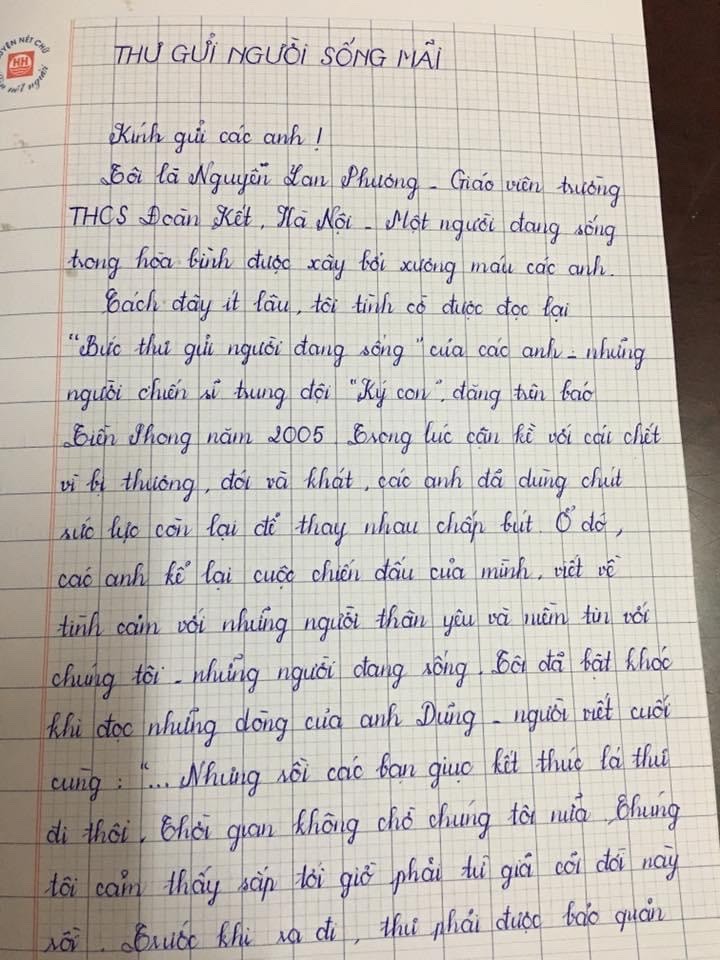 LUYỆN NÉT CHỮ
HH
nết người
THƯ GỬI NGƯỜI SỐNG MÃI
Kính gửi các anh !
Tôi là Nguyễn Lan Phương - Giáo viên trường
THCS Đoàn Kết, Hà Nội - Một người đang sống
trong hòa bình được xây bởi xương máu các anh.
Cách đây ít lâu, tôi tình cờ được đọc lại
"Bức thư gửi người đang sống" của các anh - những
người chiến sĩ trung đội "Ký con", đăng trên báo
Tiền Phong năm 2005. Trong lúc cận kề với cái chết
vì bị thương, đói và khát, các anh đã dùng chút
sức lực còn lại để thay nhau chấp bút. Ở đó,
các anh kể lại cuộc chiến đấu của mình, viết về
tình cảm với những người thân yêu và niềm tin với
chúng tôi - những người đang sống. Tôi đã bật khóc
khi đọc những dòng của anh Dũng - người viết cuối
cùng : "... Nhưng rồi các bạn giục kết thúc lá thư
đi thôi. Thời gian không chờ chúng tôi nữa. Chúng
tôi cảm thấy sắp tới giờ phải từ giã cõi đời này
rồi. Trước khi ra đi, thư phải được bảo quản